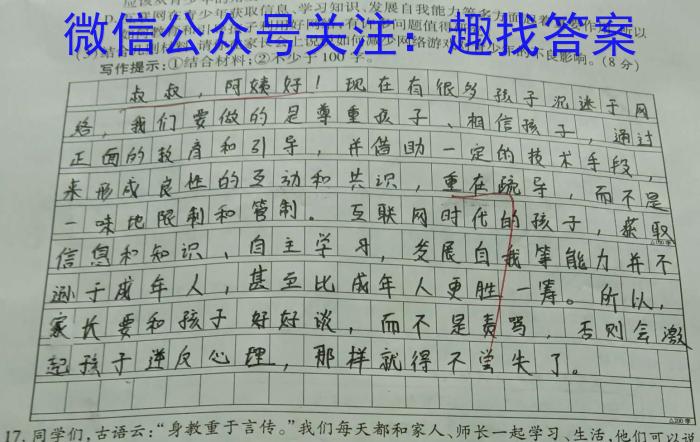 微信公众号关注：趣找答案
写作提示：①结合材料；②不少于100字。
叔叔，阿姨好！现在有很多孩子沉迷于网
络，我们要做的是尊重孩子、相信孩子，通过
正面的教育和引导，并借助一定的技术手段，
来形成良性的互动和共识，重在疏导，而不是
一味地限制和管制。互联网时代的孩子，获取
信息和知识、自主学习，发展自我等能力并不
逊于成年人，甚至比成年人更胜一筹。所以，
家长要和孩子好好谈，而不是责骂，否则会激
起孩子逆反心理，那样就得不尝失了。
17. 同学们，古语云：“身教重于言传。”我们每天都和家人、师长一起学习、生活，他们可以说